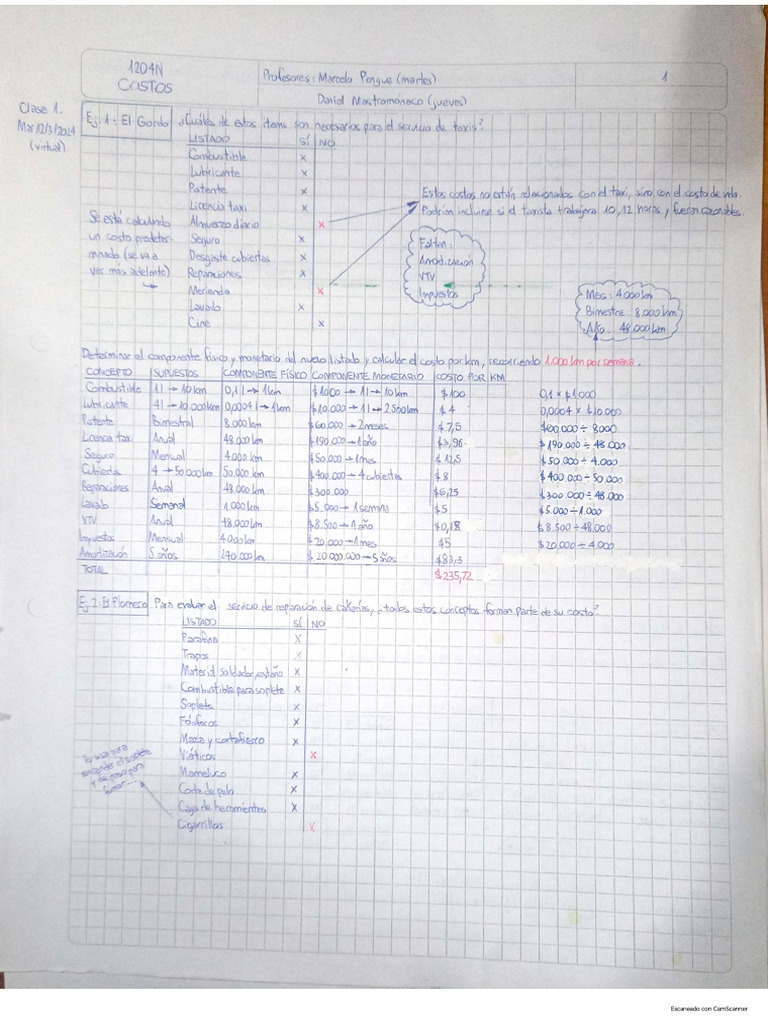 1204N
COSTOS
Profesores: Marcelo Pengue (martes)
Daniel Mastromónaco (jueves)
1
Clase 1.
Mar 12/3/2024
(virtual)
Ej 1: El Gordo ¿Cuáles de estos ítems son necesarios para el servicio de taxis?
LISTADO SÍ NO
Combustible x
Lubricante x
Patente x
Licencia taxi x
Almuerzo diario x
Seguro x
Desgaste cubiertas x
Reparaciones x
Merienda x
Lavado x
Cine x
Se está calculando
un costo predeter-
minado (se va a
ver más adelante)
Estos costos no están relacionados con el taxi, sino con el costo de vida.
Podrían incluirse si el taxista trabajara 10, 12 horas y fueran razonables.
Faltan:
Amortización
VTV
Impuestos
Mes: 4.000 km
Bimestre: 8.000 km
Año: 48.000 km
Determinar el componente físico y monetario del nuevo listado y calcular el costo por km, recorriendo 1.000 km por semana.
CONCEPTO SUPUESTOS COMPONENTE FÍSICO COMPONENTE MONETARIO COSTO POR KM
Combustible 1l → 10 km 0,1 l → 1 km $1000 → 1l → 10 km $100 0,1 x $1.000
Lubricante 4l → 10.000 km 0,0004 l → 1 km $10.000 → 1l → 2.500 km $4 0,0004 x $10.000
Patente Bimestral 8.000 km $60.000 → 2 meses $7,5 $60.000 ÷ 8000
Licencia taxi Anual 48.000 km $190.000 → 1 año $3,96 $190.000 ÷ 48.000
Seguro Mensual 4.000 km $50.000 → 1 mes $12,5 $50.000 ÷ 4.000
Cubiertas 4 → 50.000 km 50.000 km $400.000 → 4 cubiertas $8 $400.000 ÷ 50.000
Reparaciones Anual 48.000 km $300.000 $6,25 $300.000 ÷ 48.000
Lavado Semanal 1.000 km $5.000 → 1 semana $5 $5.000 ÷ 1.000
VTV Anual 48.000 km $8.500 → 1 año $0,18 $8.500 ÷ 48.000
Impuestos Mensual 4.000 km $20.000 → 1 mes $5 $20.000 ÷ 4.000
Amortización 5 años 240.000 km $20.000.000 → 5 años $83,3
TOTAL $235,72
Ej 2: El Plomero Para evaluar el servicio de reparación de cañerías, ¿todos estos conceptos forman parte de su costo?
LISTADO SÍ NO
Parafina x
Trapos x
Material soldador, estaño x
Combustible para soplete x
Soplete x
Fósforos x
Maza y cortafierro x
Viáticos x
Mameluco x
Corte de pelo x
Caja de herramientas x
Cigarrillos x
Lo usa para
encender el soplete
y de paso para
fumar...
Escaneado con CamScanner